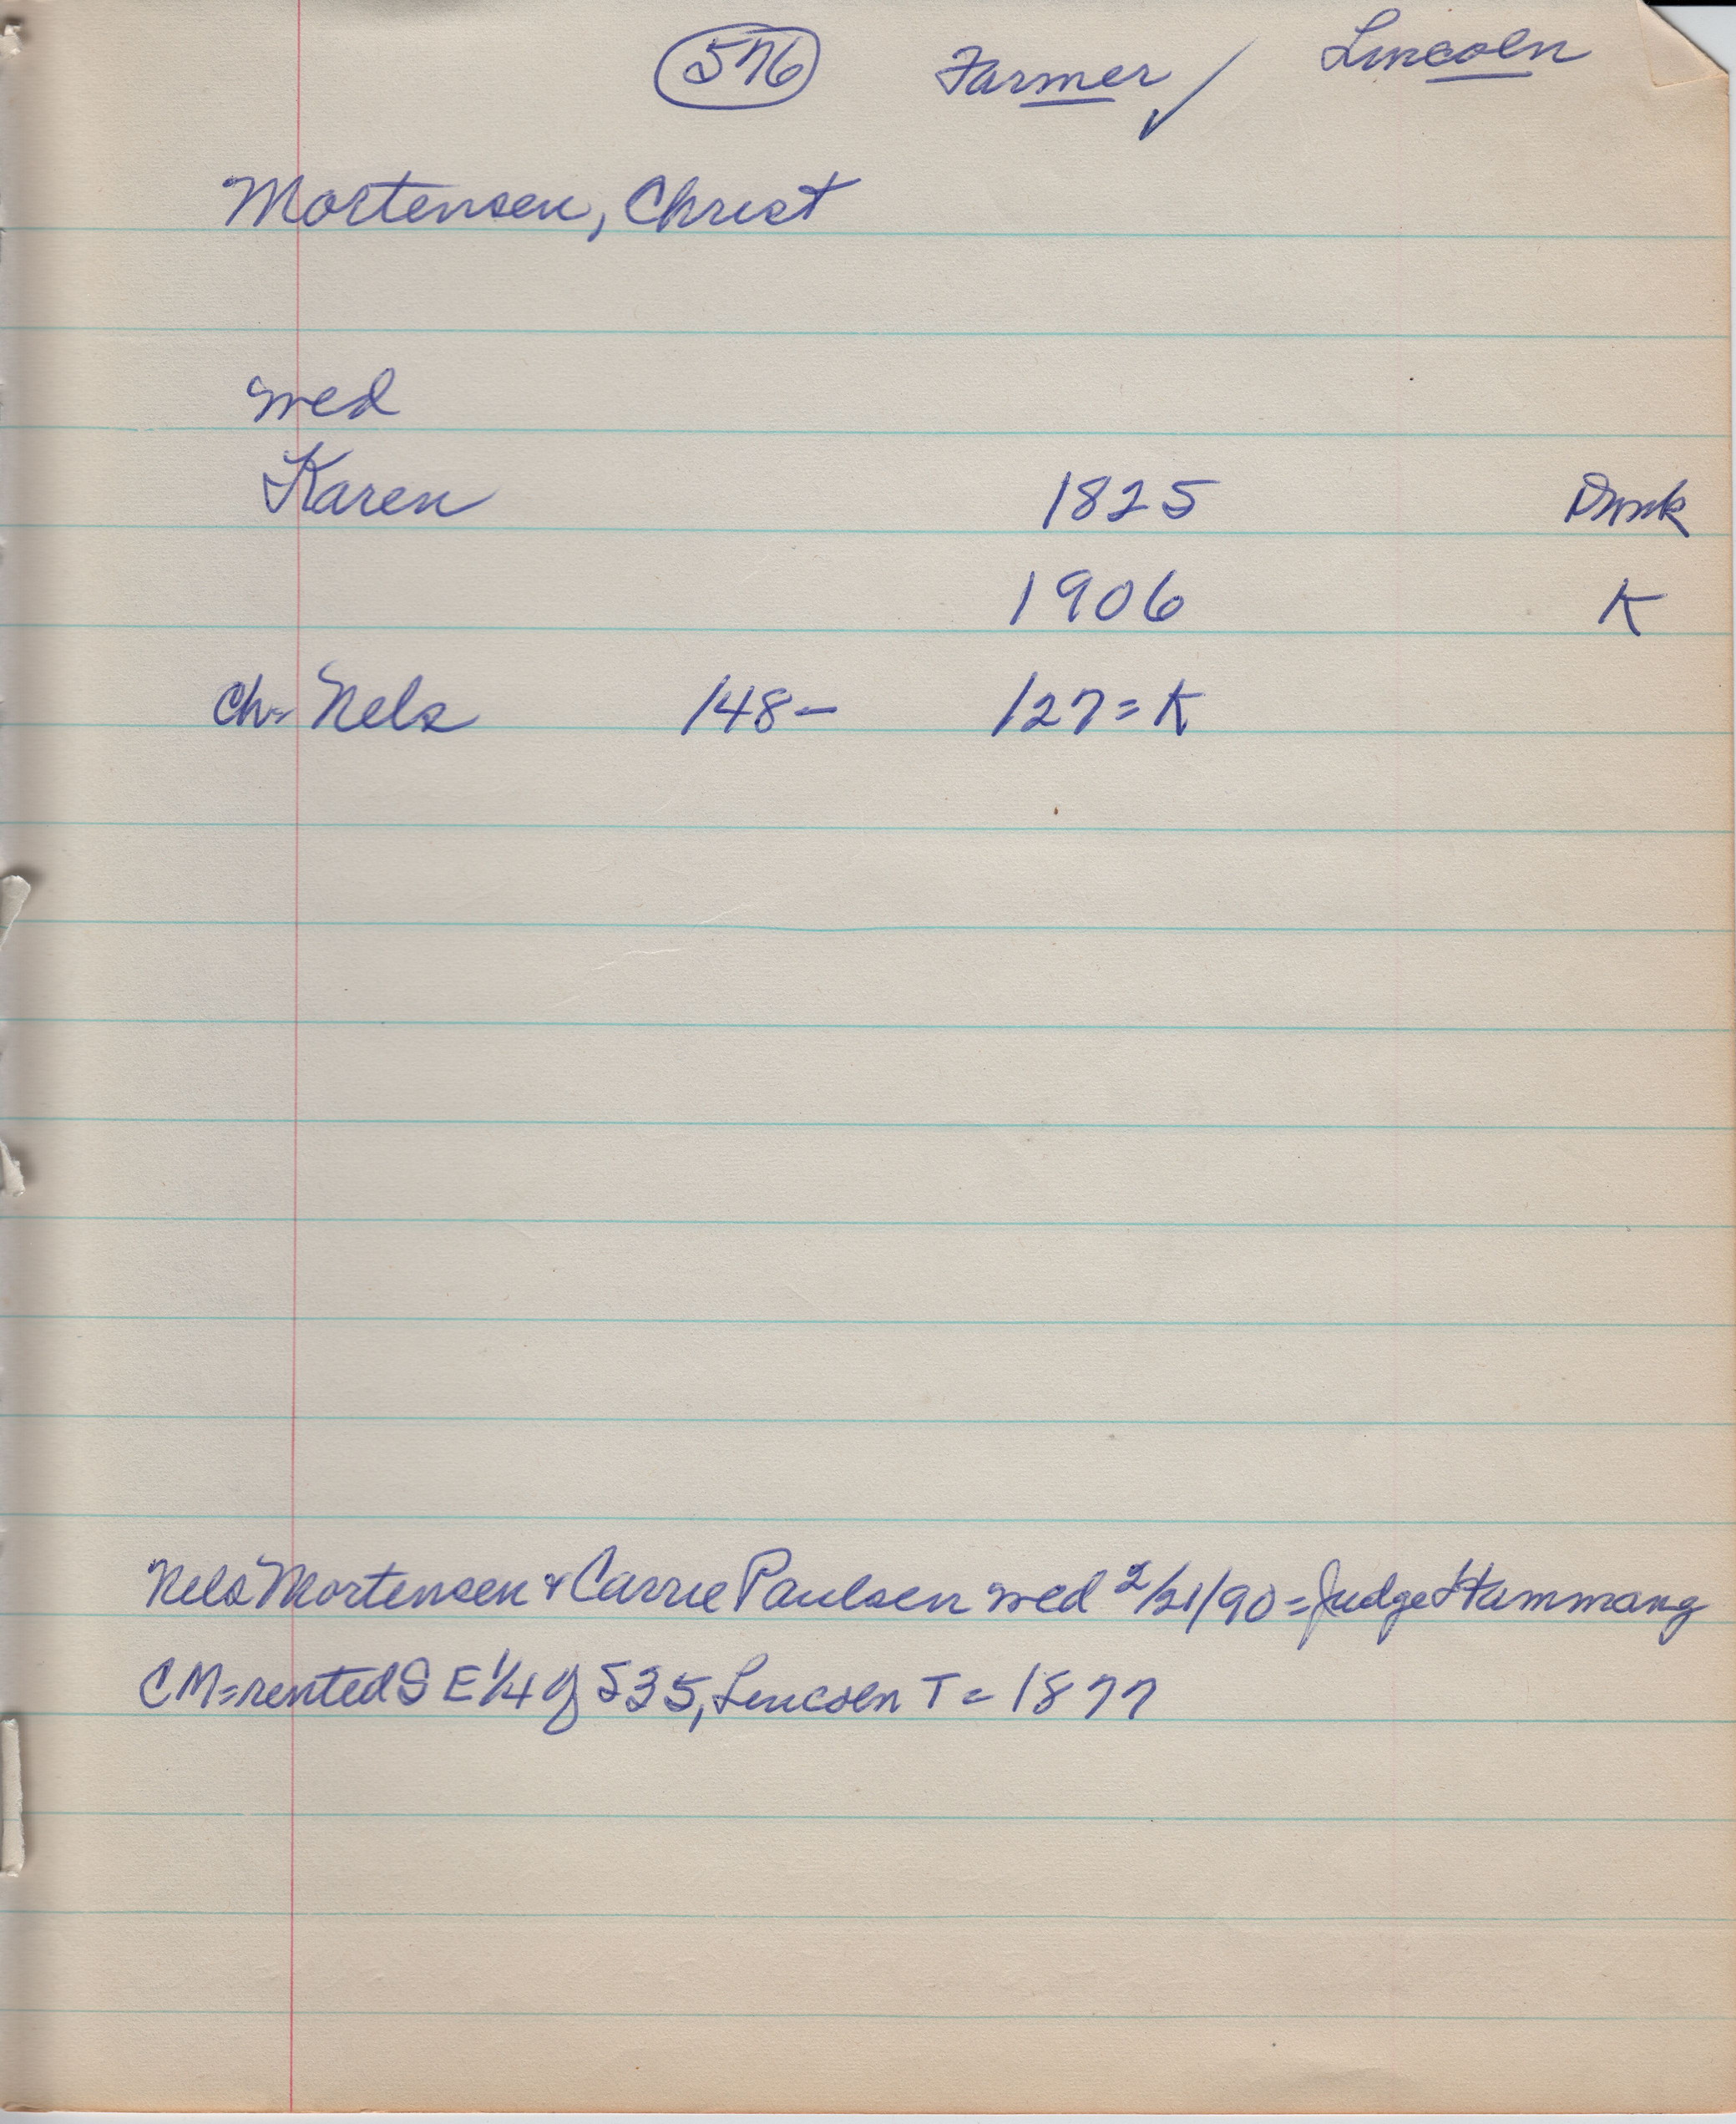 576 Farmer ✓ Lincoln
Mortensen, Christ
wed
Karen 1825 Dmk
1906 K
Ch= Nels 148- 127=K
Nels Mortensen & Carrie Paulsen wed 2/21/90=Judge Hammang
CM=rented S E 1/4 of S35, Lincoln T= 1877